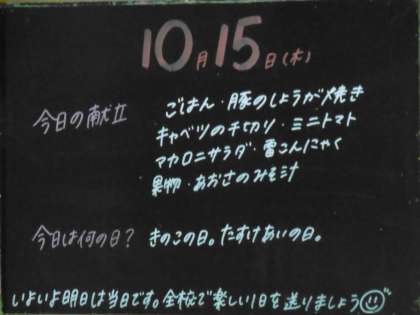 10月15日(木)
今日の献立
ごはん・豚のしょうが焼き
キャベツの千切り・ミニトマト
マカロニサラダ・雷こんにゃく
果物・あおさのみそ汁
今日は何の日? きのこの日。たすけあいの日。
いよいよ明日は当日です。全校で楽しい1日を送りましょう